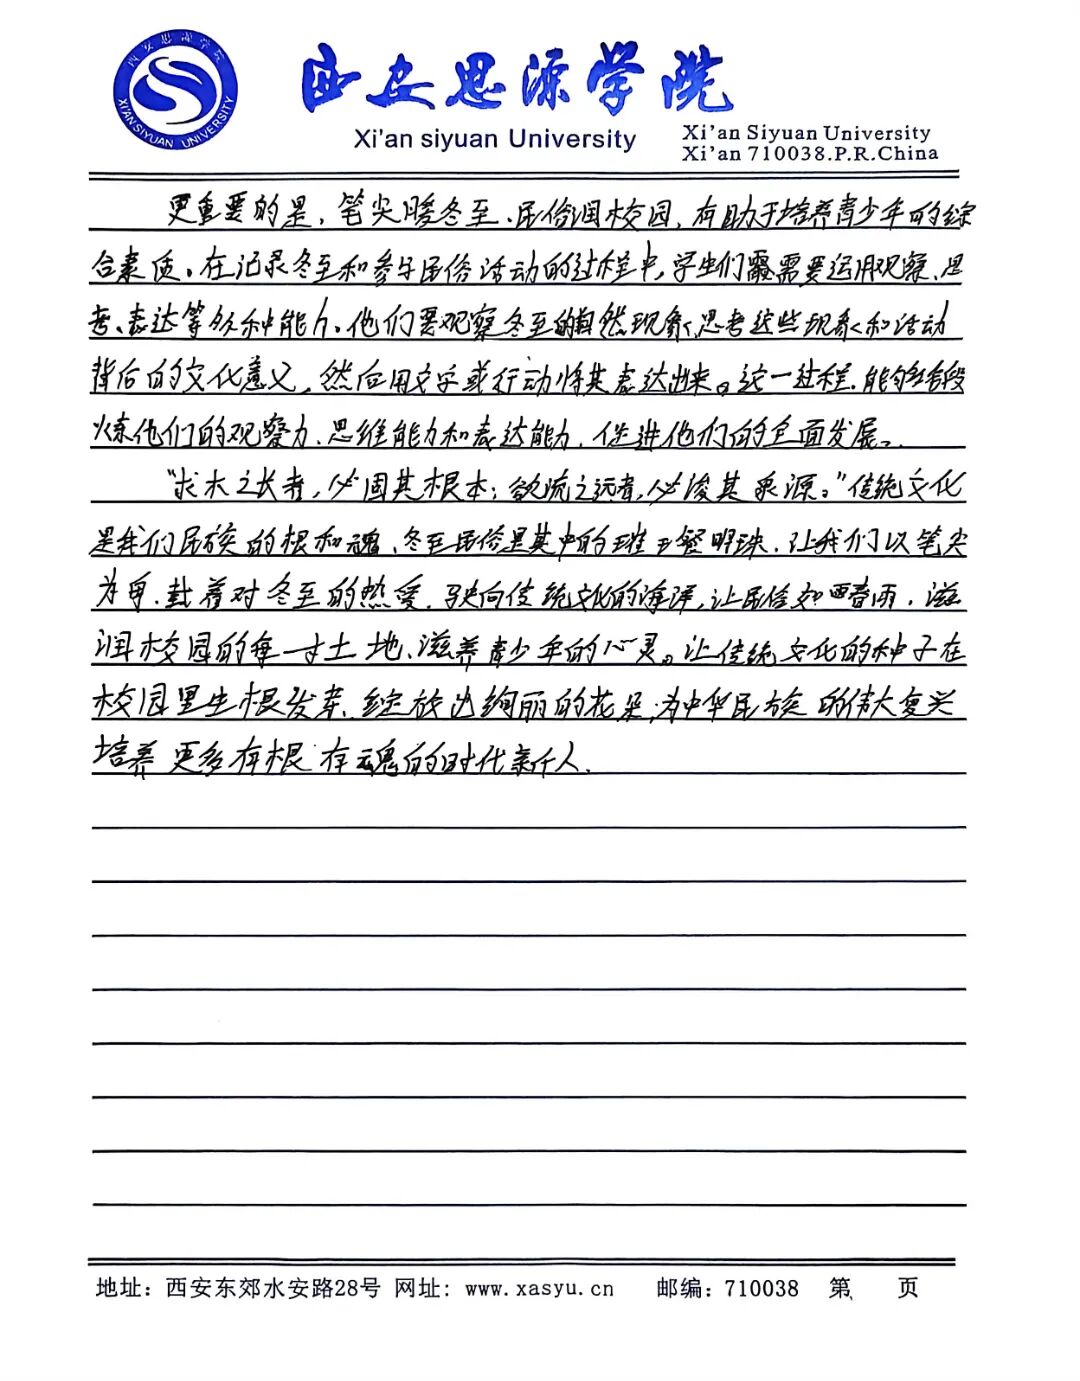 西安思源学院
XI'AN SIYUAN UNIVERSITY
西安思源学院
Xi'an siyuan University
Xi'an Siyuan University
Xi'an 710038.P.R.China
更重要的是，笔尖暖冬至、民俗润校园，有助于培养青少年的综
合素质。在记录冬至和参与民俗活动的过程中，学生们需要运用观察、思
考、表达等多种能力。他们要观察冬至的自然现象，思考这些现象和活动
背后的文化意义，然后用文字或行动将其表达出来。这一过程，能够锻
炼他们的观察力、思维能力和表达能力，促进他们的全面发展。
“求木之长者，必固其根本；欲流之远者，必浚其泉源。”传统文化
是我们民族的根和魂，冬至民俗是其中的璀璨明珠，让我们以笔尖
为舟，载着对冬至的热爱，驶向传统文化的海洋，让民俗如春雨，滋
润校园的每一寸土地、滋养青少年的心灵。让传统文化的种子在
校园里生根发芽、绽放出绚丽的花朵，为中华民族的伟大复兴
培养更多有根有魂的时代新人。
地址：西安东郊水安路28号 网址：www.xasyu.cn 邮编：710038 第 页